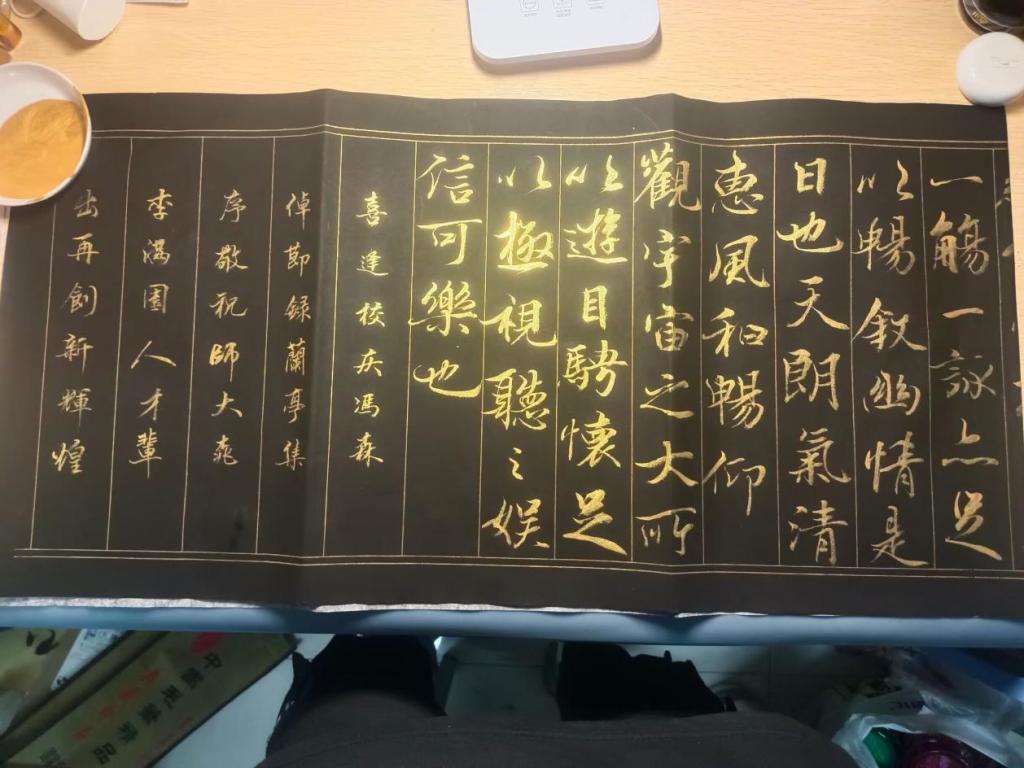 一觴一詠亦足
以暢叙幽情是
日也天朗氣清
恵風和暢仰
觀宇宙之大所
以遊目騁懷足
以極視聽之娱
信可樂也
喜逢校庆馮森
倬節録蘭亭集
序敬祝師大桃
李满園人才輩
出再創新輝煌
中國毛筆精品